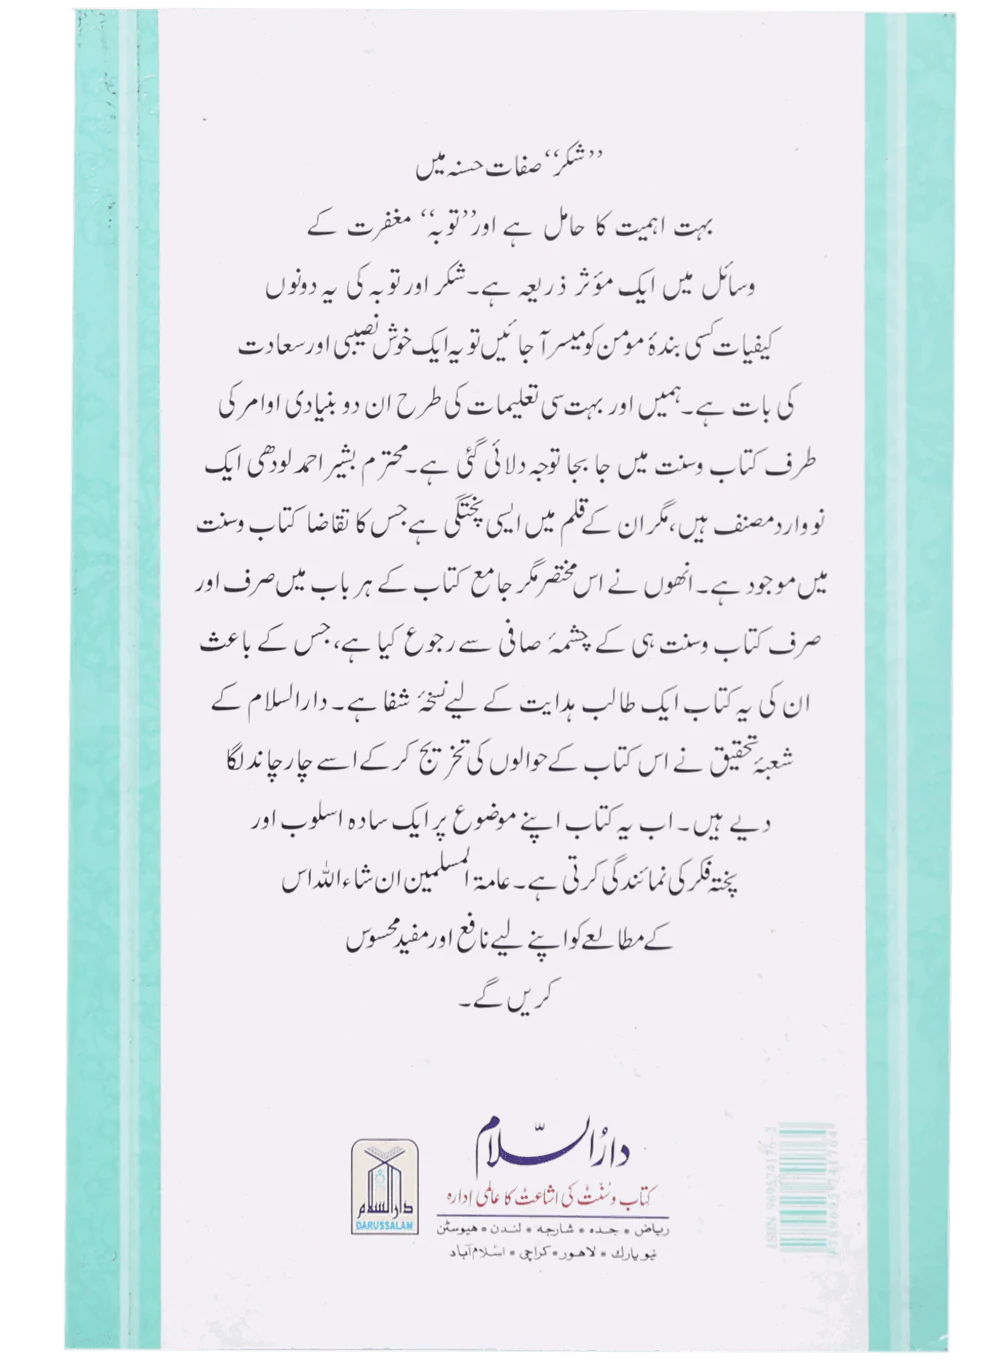 ’’شکر‘‘ صفات حسنہ میں
بہت اہمیت کا حامل ہے اور ’’توبہ‘‘ مغفرت کے
وسائل میں ایک مؤثر ذریعہ ہے۔ شکر اور توبہ کی یہ دونوں
کیفیات کسی بندۂ مومن کو میسر آ جائیں تو یہ ایک خوش نصیبی اور سعادت
کی بات ہے۔ ہمیں اور بہت سی تعلیمات کی طرح ان دو بنیادی اوامر کی
طرف کتاب وسنت میں جا بجا توجہ دلائی گئی ہے۔ محترم بشیر احمد لودھی ایک
نو وارد مصنف ہیں، مگر ان کے قلم میں ایسی پختگی ہے جس کا تقاضا کتاب وسنت
میں موجود ہے۔ انھوں نے اس مختصر مگر جامع کتاب کے ہر باب میں صرف اور
صرف کتاب وسنت ہی کے چشمۂ صافی سے رجوع کیا ہے، جس کے باعث
ان کی یہ کتاب ایک طالب ہدایت کے لیے نسخۂ شفا ہے۔ دارالسلام کے
شعبۂ تحقیق نے اس کتاب کے حوالوں کی تخریج کر کے اسے چار چاند لگا
دیے ہیں۔ اب یہ کتاب اپنے موضوع پر ایک سادہ اسلوب اور
پختہ فکر کی نمائندگی کرتی ہے۔ عامۃ المسلمین ان شاء اللہ اس
کے مطالعے کو اپنے لیے نافع اور مفید محسوس
کریں گے۔
دارالسّلام
کتاب وسُنّت کی اشاعت کا عالمی ادارہ
ریاض • جدہ • شارجہ • لندن • ھیوسٹن
نیو یارك • لاھور • کراچی • اسلام آباد
دارالسلام
DARUSSALAM